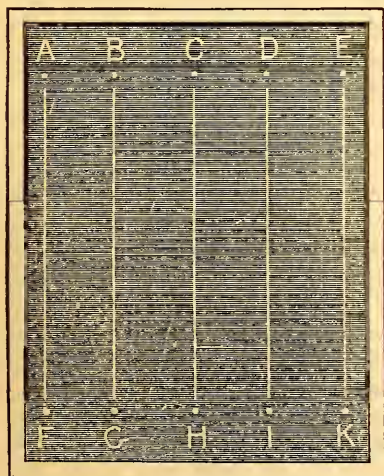 A B C D E
F G H I K